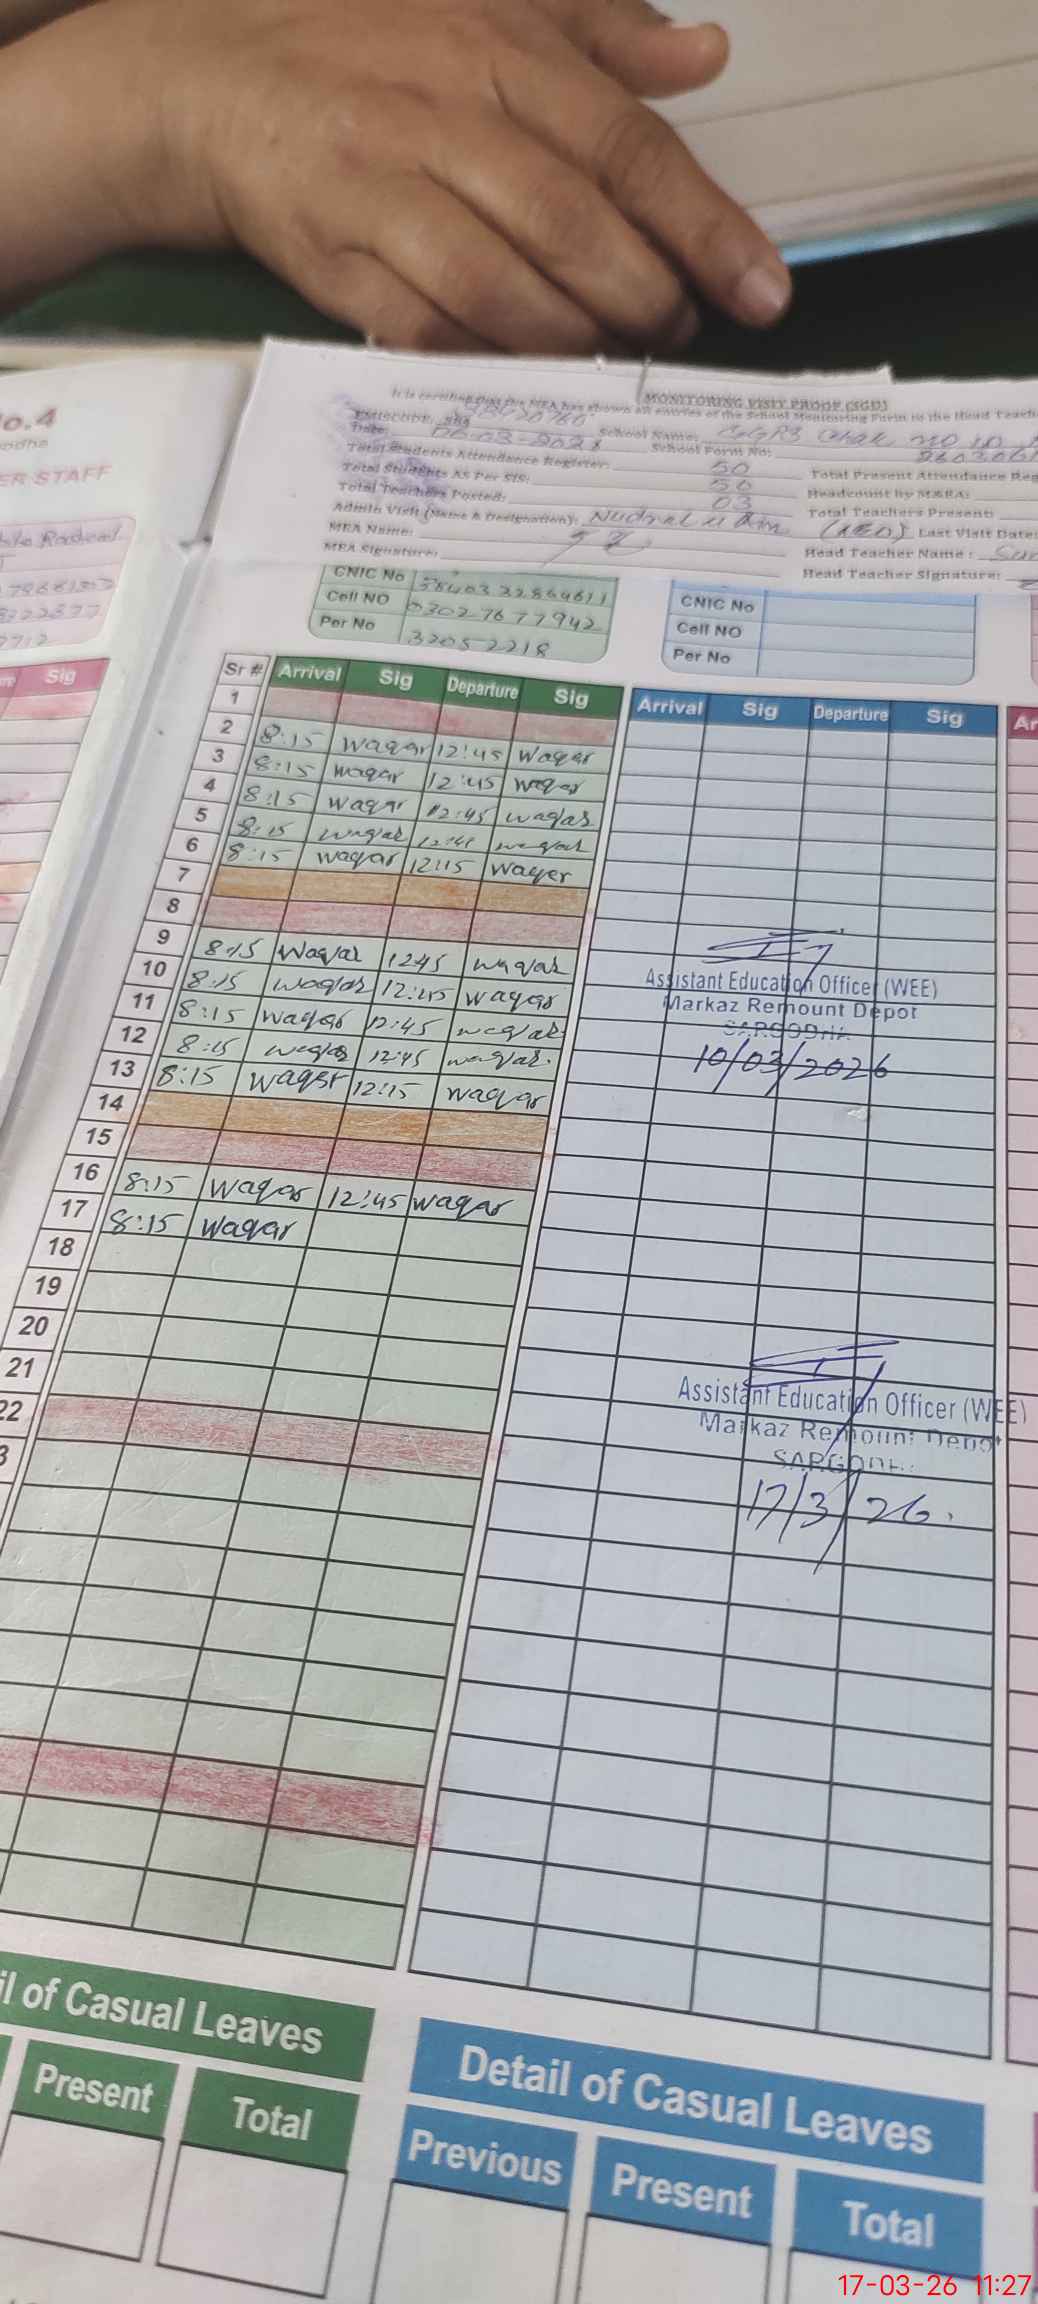 o.4
odha
ER STAFF
Sig
MONITORING VISIT PROOF (SGD)
It is certified that the MEA has shown all entries of the School Monitoring Form to the Head Teach
EMISCODE:
Date: 06-03-202 School Name: GGPS Chak NO 10
Total Students Attendance Register: 50 School Form No:
Total Students As Per SIS: 50 Total Present Attendance Reg
Total Teachers Posted: 03 Headcount by M&EA:
Admin Visit (Name & Designation): (AEO) Total Teachers Present:
MEA Name: Last Visit Date:
MEA Signature: Head Teacher Name :
Head Teacher Signature:
CNIC No
Cell NO 0302 7677942
Per No 32052218
CNIC No
Cell NO
Per No
Sr # Arrival Sig Departure Sig
Arrival Sig Departure Sig
Ar
1
2 8:15 waqar 12:45 waqar
3 8:15 waqar 12:45 waqar
4 8:15 waqar 12:45 waqar
5 8:15 waqar 12:45 waqar
6 8:15 waqar 12:15 waqar
7
8
9 8:15 waqar 1245 waqar
10 8:15 waqar 12:45 waqar
11 8:15 waqar 12:45 waqar
12 8:15 waqar 12:45 waqar
13 8:15 waqar 12:15 waqar
14
15
16 8:15 waqar 12:45 waqar
17 8:15 waqar
18
19
20
21
22
3
Assistant Education Officer (WEE)
Markaz Remount Depot
SARGODHA
10/03/2026
Assistant Education Officer (WEE)
Markaz Remount Depot
SARGODHA
17/3/26.
il of Casual Leaves
Present Total
Detail of Casual Leaves
Previous Present Total
17-03-26 11:27